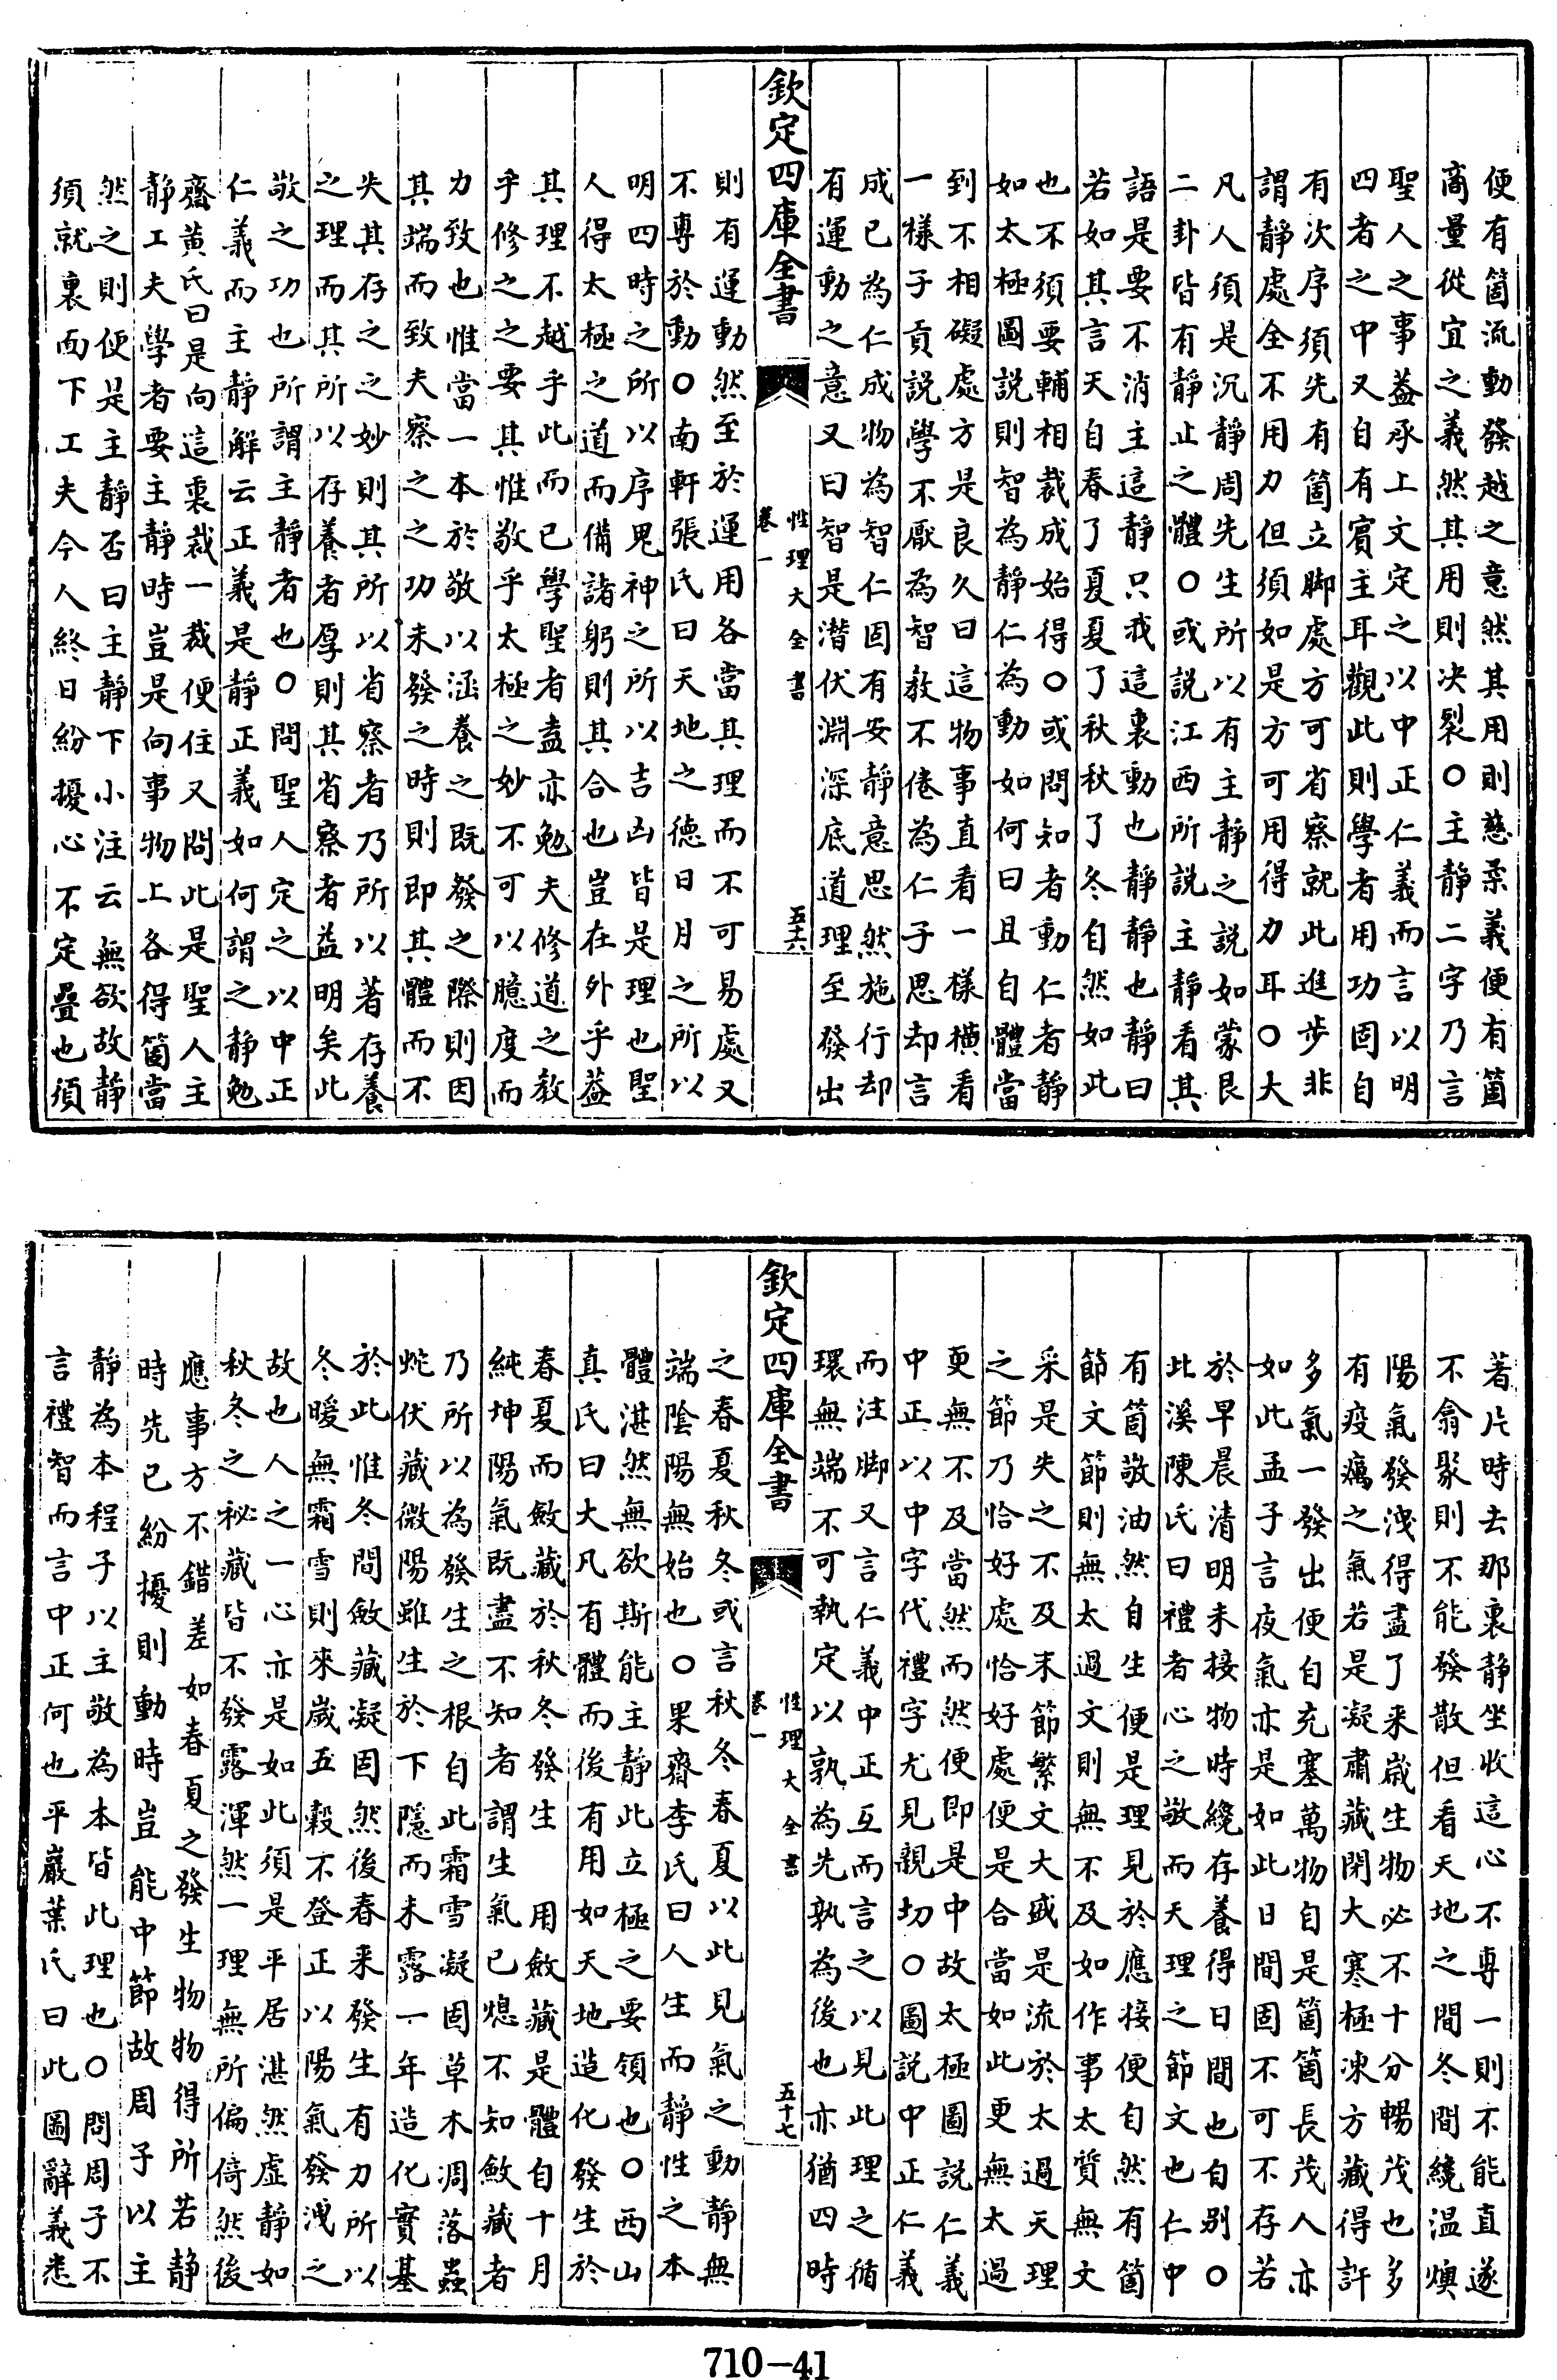 便有箇流動發越之意然其用則慈柔義便有箇
商量從宜之義然其用則決裂○主靜二字乃言
聖人之事葢承上文定之以中正仁義而言以明
四者之中又自有賓主耳觀此則學者用功固自
有次序須先有箇立脚處方可省察就此進步非
謂靜處全不用力但須如是方可用得力耳○大
凡人須是沉靜周先生所以有主靜之說如蒙艮
二卦皆有靜止之體○或説江西所説主靜看其
語是要不消主這靜只我這裏動也靜靜也靜曰
若如其言天自春了夏夏了秋秋了冬自然如此
也不須要輔相裁成始得○或問知者動仁者靜
如太極圖説則智為靜仁為動如何曰且自體當
到不相礙處方是良久曰這物事直看一樣橫看
一樣子貢説學不厭為智教不倦為仁子思却言
成已為仁成物為智仁固有安靜意思然施行却
有運動之意又曰智是潛伏淵深底道理至發出
欽定四庫全書
性理大全書
卷一
五十六
則有運動然至於運用各當其理而不可易處又
不專於動○南軒張氏曰天地之德日月之所以
明四時之所以序鬼神之所以吉凶皆是理也聖
人得太極之道而備諸躬則其合也豈在外乎葢
其理不越乎此而已學聖者盍亦勉夫修道之教
乎修之之要其惟敬乎太極之妙不可以臆度而
力致也惟當一本於敬以涵養之既發之際則因
其端而致夫察之之功未發之時則即其體而不
失其存之之妙則其所以省察者乃所以著存養
之理而其所以存養者厚則其省察者益明矣此
敬之功也所謂主靜者也○問聖人定之以中正
仁義而主靜解云正義是靜正義如何謂之靜勉
齋黄氏曰是向這裏裁一裁便住又問此是聖人主
靜工夫學者要主靜時豈是向事物上各得箇當
然之則便是主靜否曰主靜下小注云無欲故靜
須就裏面下工夫今人終日紛擾心不定疊也須
著片時去那裏靜坐收這心不專一則不能直遂
不翕聚則不能發散但看天地之間冬間纔温燠
陽氣發洩得盡了来嵗生物必不十分暢茂也多
有疫癘之氣若是凝肅藏閉大寒極凍方藏得許
多氣一發出便自充塞萬物自是箇箇長茂人亦
如此孟子言夜氣亦是如此日間固不可不存若
於早晨清明未接物時纔存養得日間也自别○
北溪陳氏曰禮者心之敬而天理之節文也仁中
有箇敬油然自生便是理見於應接便自然有箇
節文節則無太過文則無不及如作事太質無文
采是失之不及末節繁文大盛是流於太過天理
之節乃恰好處恰好處便是合當如此更無太過
更無不及當然而然便即是中故太極圖説仁義
中正以中字代禮字尤見親切○圖説中正仁義
而注脚又言仁義中正互而言之以見此理之循
環無端不可執定以孰為先孰為後也亦猶四時
欽定四庫全書
性理大全書
卷一
五十七
之春夏秋冬或言秋冬春夏以此見氣之動靜無
端陰陽無始也○果齋李氏曰人生而靜性之本
體湛然無欲斯能主靜此立極之要領也○西山
真氏曰大凡有體而後有用如天地造化發生於
春夏而斂藏於秋冬發生 用斂藏是體自十月
純坤陽氣既盡不知者謂生氣已熄不知斂藏者
乃所以為發生之根自此霜雪凝固草木凋落蟲
蛇伏藏微陽雖生於下隱而未露一年造化實基
於此惟冬間斂藏凝固然後春来發生有力所以
冬暖無霜雪則來嵗五穀不登正以陽氣發洩之
故也人之一心亦是如此須是平居湛然虚靜如
秋冬之秘藏皆不發露渾然一理無所偏倚然後
應事方不錯差如春夏之發生物物得所若靜
時先已紛擾則動時豈能中節故周子以主
靜為本程子以主敬為本皆此理也○問周子不
言禮智而言中正何也平巖葉氏曰此圖辭義悉
710-41